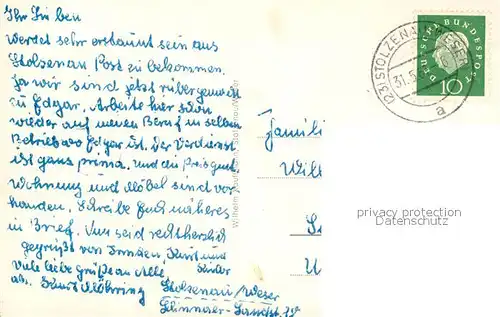 Ihr Lieben
werdet sehr erstaunt sein aus
Stolzenau Post zu bekommen.
Ja wir sind jetzt rübergemacht
zu Edgar. Arbeite hier schon
wieder auf meinen Beruf in selben
Betrieb wo Edgar ist. Der Verdienst
ist ganz prima. und die Preise gut
Wohnung und Möbel sind vor-
handen. Schreibe Euch näheres
in Brief. Nun seid recht herzlich
gegrüßt von Kurt und
Kinder
Viele liebe Grüße an Alle
Kurt Möhring
Stolzenau/Weser
Familie
(23) STOLZENAU
31.5.
a
DEUTSCHE BUNDESPOST
10
privacy protection